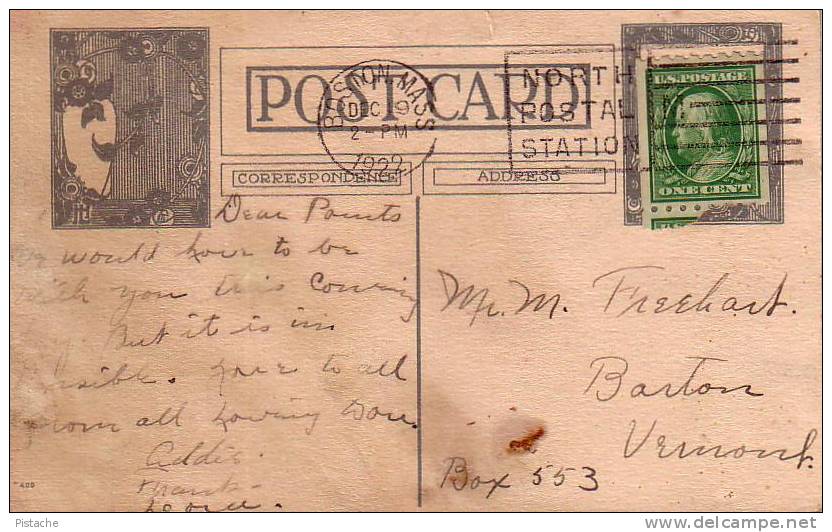 POST CARD
BOSTON, MASS
DEC 9
2-PM
1922
NORTH
POSTAL
STATION
U.S. POSTAGE
ONE CENT
CORRESPONDENCE
ADDRESS
Dear
would love to be
with you this Coming
But it is im
love to all
from all loving
Addie
Mr. M.
Barton
Vermont
Box 553
400
Pistache
delcampe.net